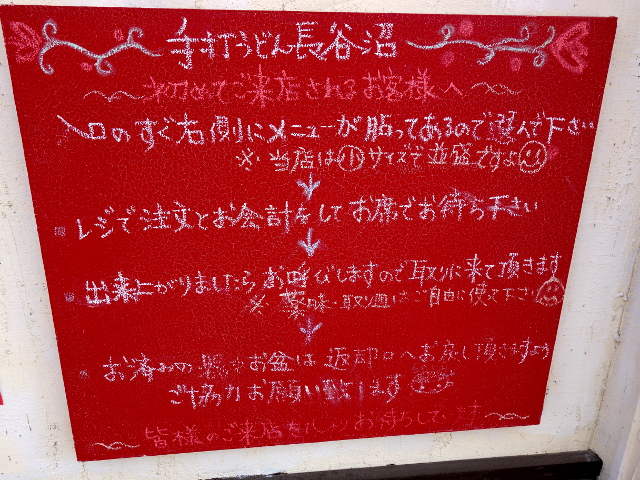 手打うどん長谷沼
初めてご来店されるお客様へ
入口のすぐ右側にメニューが貼ってあるので選んで下さい
※ 当店は小サイズで並盛ですよ
↓
レジで注文とお会計をしてお席でお待ち下さい
↓
出来上がりましたらお呼びしますので取りに来て頂きます
※ 薬味・取皿はご自由に使って下さい
↓
お済みの器やお盆は返却口へお戻し頂きますよう
ご協力お願い致します
皆様のご来店を お待ちして